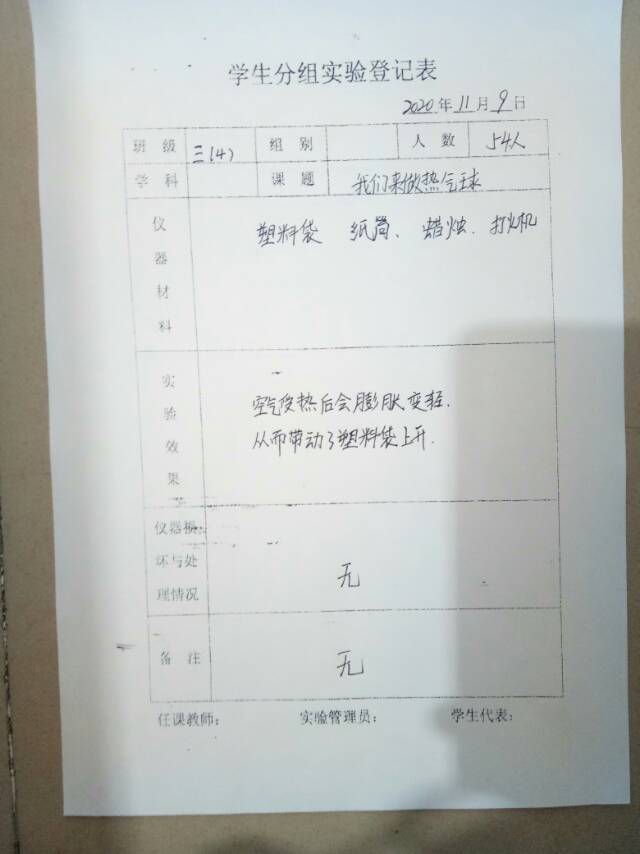 学生分组实验登记表
2020年11月9日
班级 三(4) 组别 人数 54人
学科 课题 我们来做热气球
仪器材料 塑料袋 纸筒、蜡烛、打火机
实验效果 空气受热后会膨胀变轻.
从而带动了塑料袋上升.
仪器损
坏与处
理情况 无
备注 无
任课教师: 实验管理员: 学生代表: